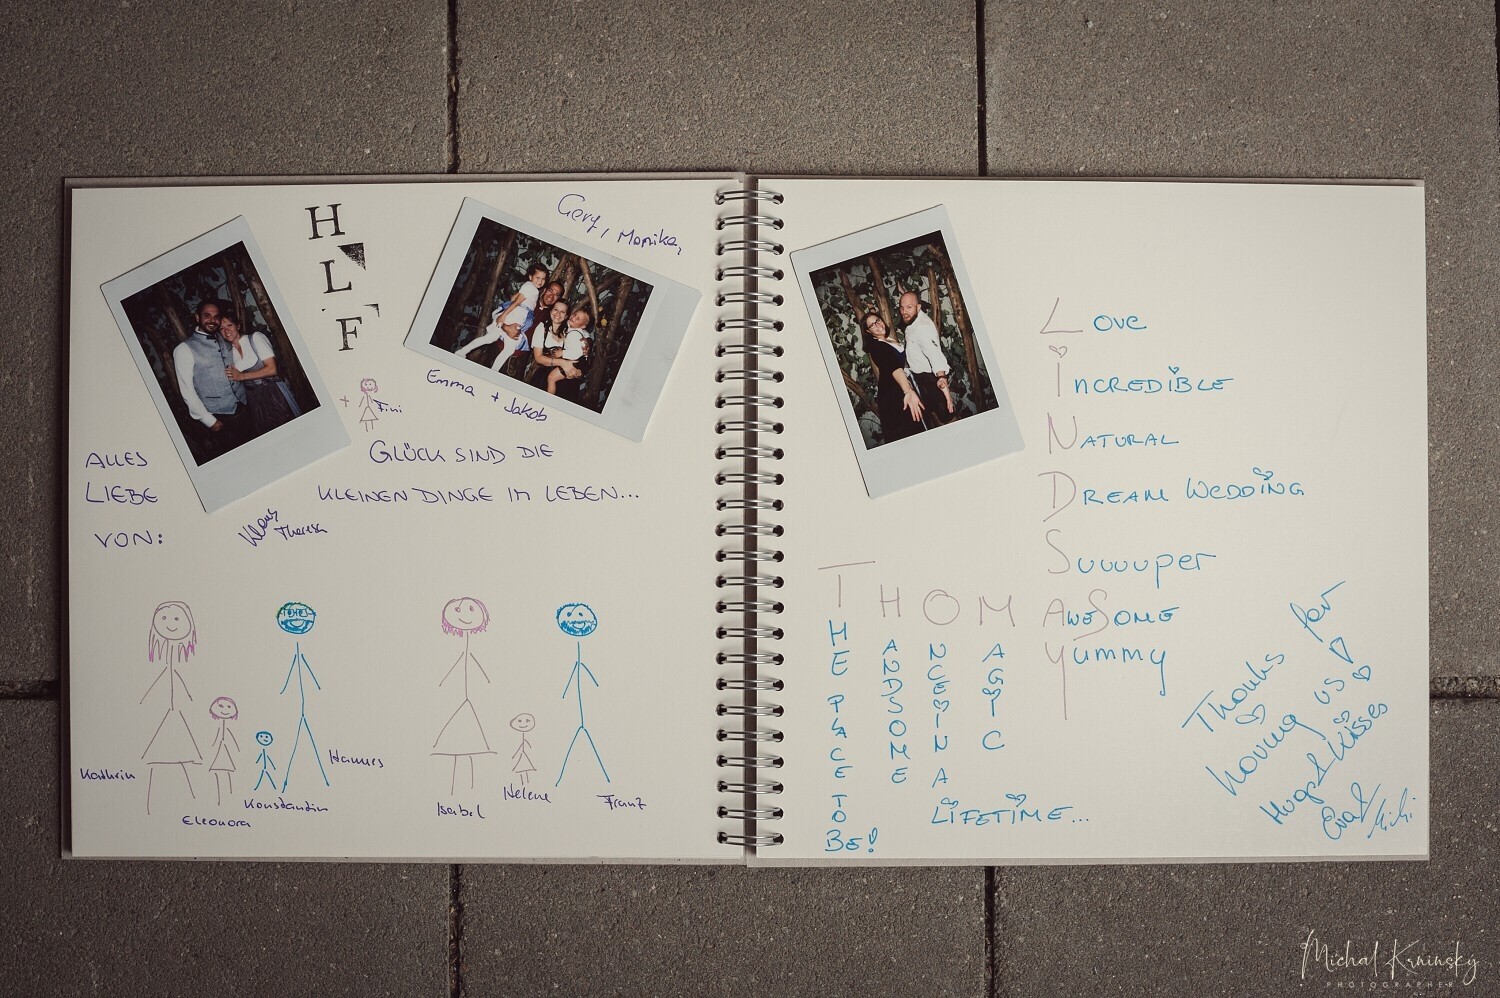 H
L
F
Gery, Monika,
Emma + Jakob
+ Fini
GLÜCK SIND DIE
KLEINEN DINGE IM LEBEN...
ALLES
LIEBE
VON:
Klaus
Theresa
Kathrin
Eleonora
Konstantin
Hannes
Isabel
Helene
Franz
LOVE
INCREDIBLE
NATURAL
DREAM WEDDING
Suuuuper
AWESOME
Yummy
THOMAS
THE PLACE TO BE!
HANDSOME
ONCE IN A
LIFETIME...
MAGIC
Thanks for
having us
Hugs & Kisses
Eva & Michi
Michal Krninský
PHOTOGRAPHER